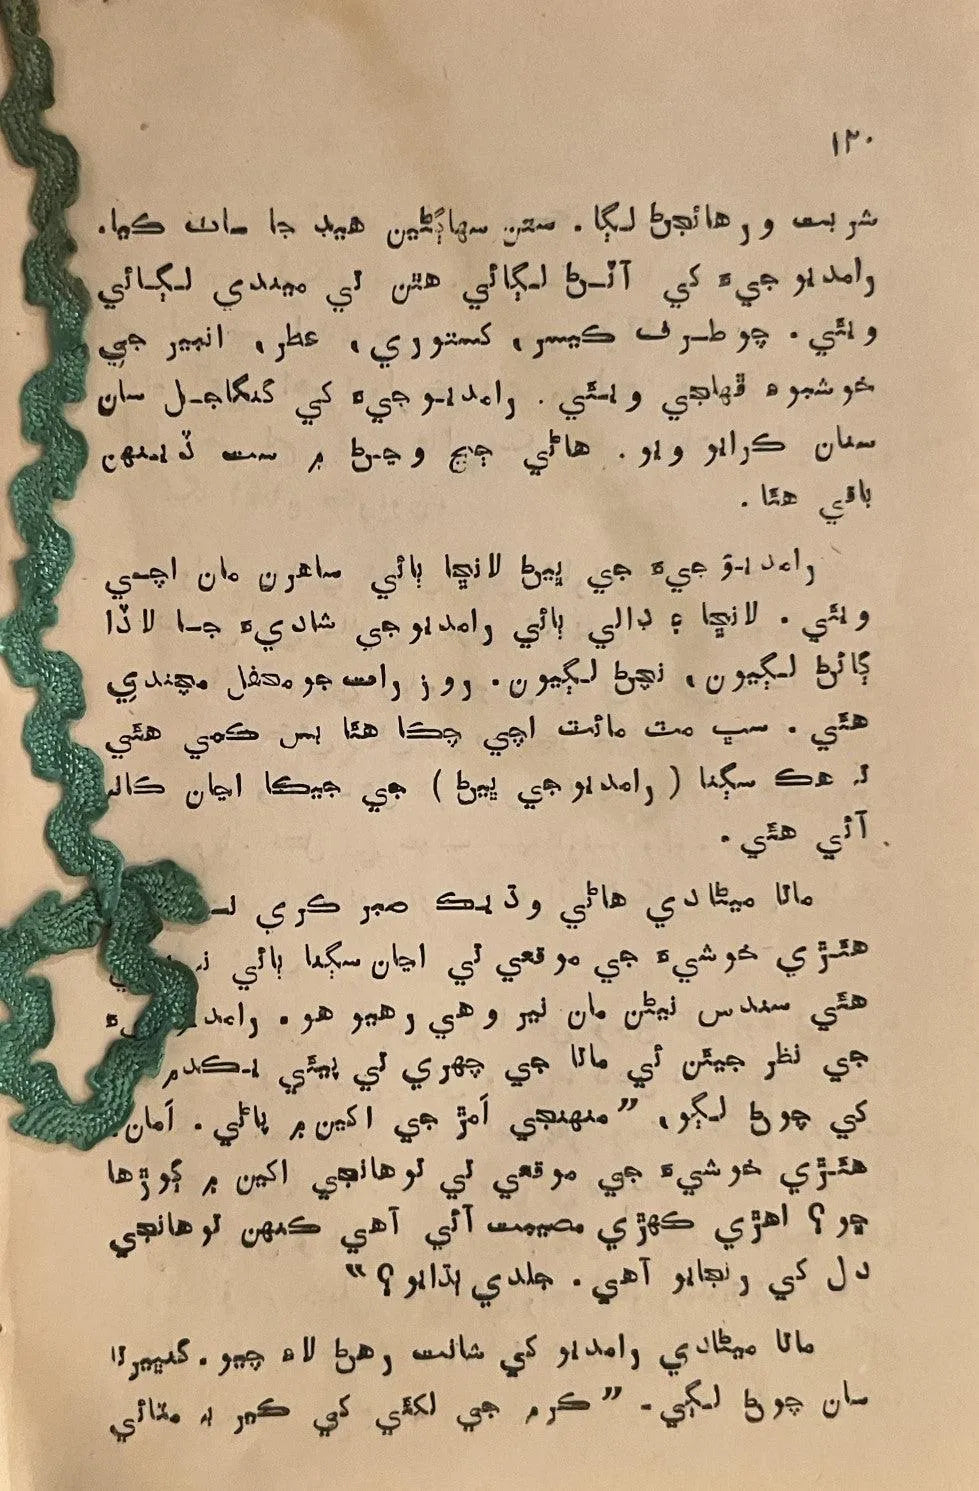 ۱۳۰
شربت ورهائجڻ لڳا. ستن سهاڳڻين هيڊ جا سات ڪيا.
رامديو جيءَ کي آٽڻ لڳائي هٿن تي ميندي لڳائي
وئي. چو طرف ڪيسر، کستوري، عطر، انبير جي
خوشبوءِ ڦهلجي وئي. رامديو جيءَ کي گنگاجل سان
سنان ڪرايو ويو. هاڻي ڄڃ وڃڻ ۾ ست ڏينهن
باقي هئا.
رامديو جيءَ جي ڀيڻ لانڇا ٻائي ساهرن مان اچي
وئي. لانڇا ۽ ڊالي ٻائي رامديو جي شاديءَ جا لاڏا
ڳائڻ لڳيون، نچڻ لڳيون. روز رات جو محفل مچندي
هئي. سڀ مٽ مائٽ اچي چڪا هئا بس ڪمي هئي
ته هڪ سڳنا (رامديو جي ڀيڻ) جي جيڪا اڃان ڪانه
آئي هئي.
ماتا ميڻادي هاڻي وڌيڪ صبر ڪري
هئڙي خوشيءَ جي موقعي تي اڃان سڳنا ٻائي
هئي سندس نيڻن مان نير وهي رهيو هو.
جي نظر جيئن ئي ماتا جي چهري تي پيئي يڪدم
کي چوڻ لڳو، ”منهنجي اَمڙ جي اکين ۾ پاڻي. اَمان،
هئڙي خوشيءَ جي موقعي تي توهانجي اکين ۾ ڳوڙها
ڇو؟ اهڙي ڪهڙي مصيبت آئي آهي ڪنهن توهانجي
دل کي رنجايو آهي. جلدي ٻڌايو؟“
ماتا ميڻادي رامديو کي شانت رهڻ لاءِ چيو. گنڀيرتا
سان چوڻ لڳي- ”ڪرم جي لکئي کي ڪير به مٽائي